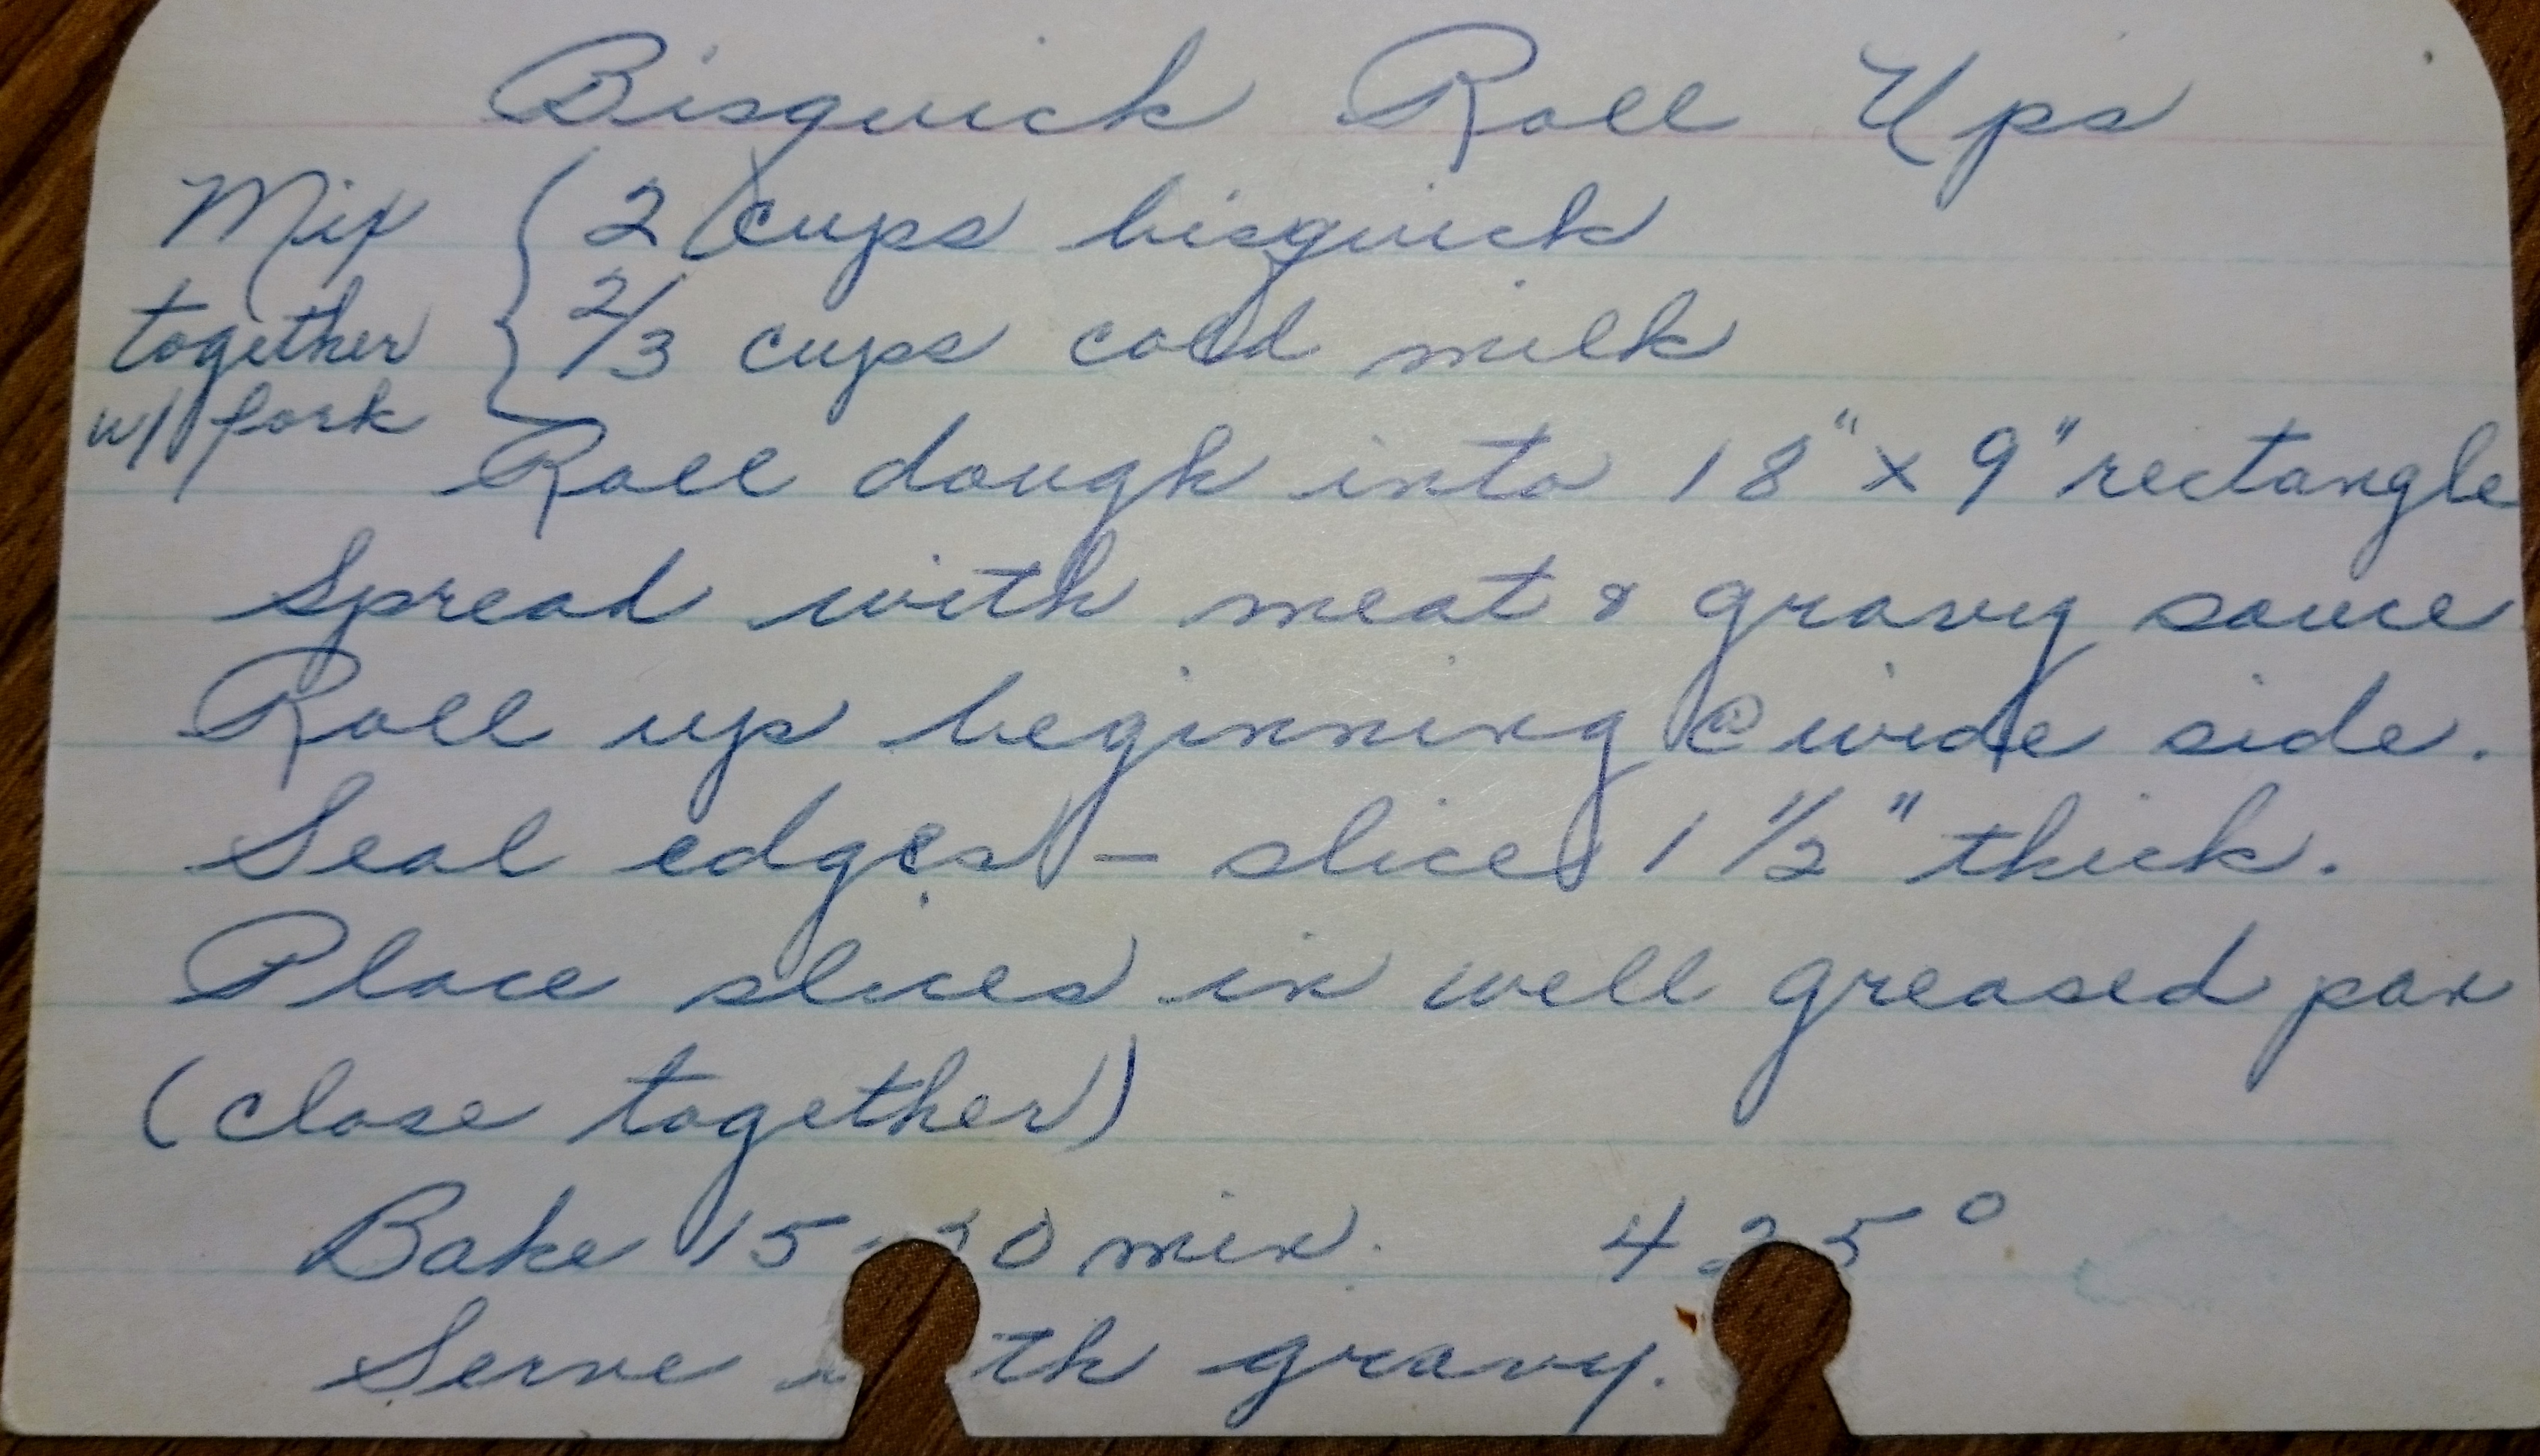 Bisquick Roll Ups
Mix { 2 cups bisquick
together 2/3 cups cold milk
w/ fork
Roll dough into 18" x 9" rectangle
Spread with meat & gravy sauce
Roll up beginning @ wide side.
Seal edges - slice 1 1/2" thick.
Place slices in well greased pan
(close together)
Bake 15-20 min. 425°
Serve with gravy.